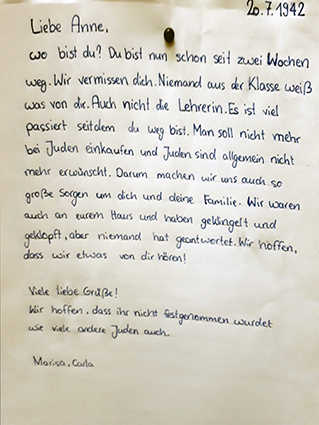 20.7.1942
Liebe Anne,
wo bist du? Du bist nun schon seit zwei Wochen
weg. Wir vermissen dich. Niemand aus der Klasse weiß
was von dir. Auch nicht die Lehrerin. Es ist viel
passiert seitdem du weg bist. Man soll nicht mehr
bei Juden einkaufen und Juden sind allgemein nicht
mehr erwünscht. Darum machen wir uns auch so
große Sorgen um dich und deine Familie. Wir waren
auch an eurem Haus und haben geklingelt und
geklopft, aber niemand hat geantwortet. Wir hoffen,
dass wir etwas von dir hören!
Viele liebe Grüße!
Wir hoffen, dass ihr nicht festgenommen wurdet
wie viele andere Juden auch.
Marisa, Carla